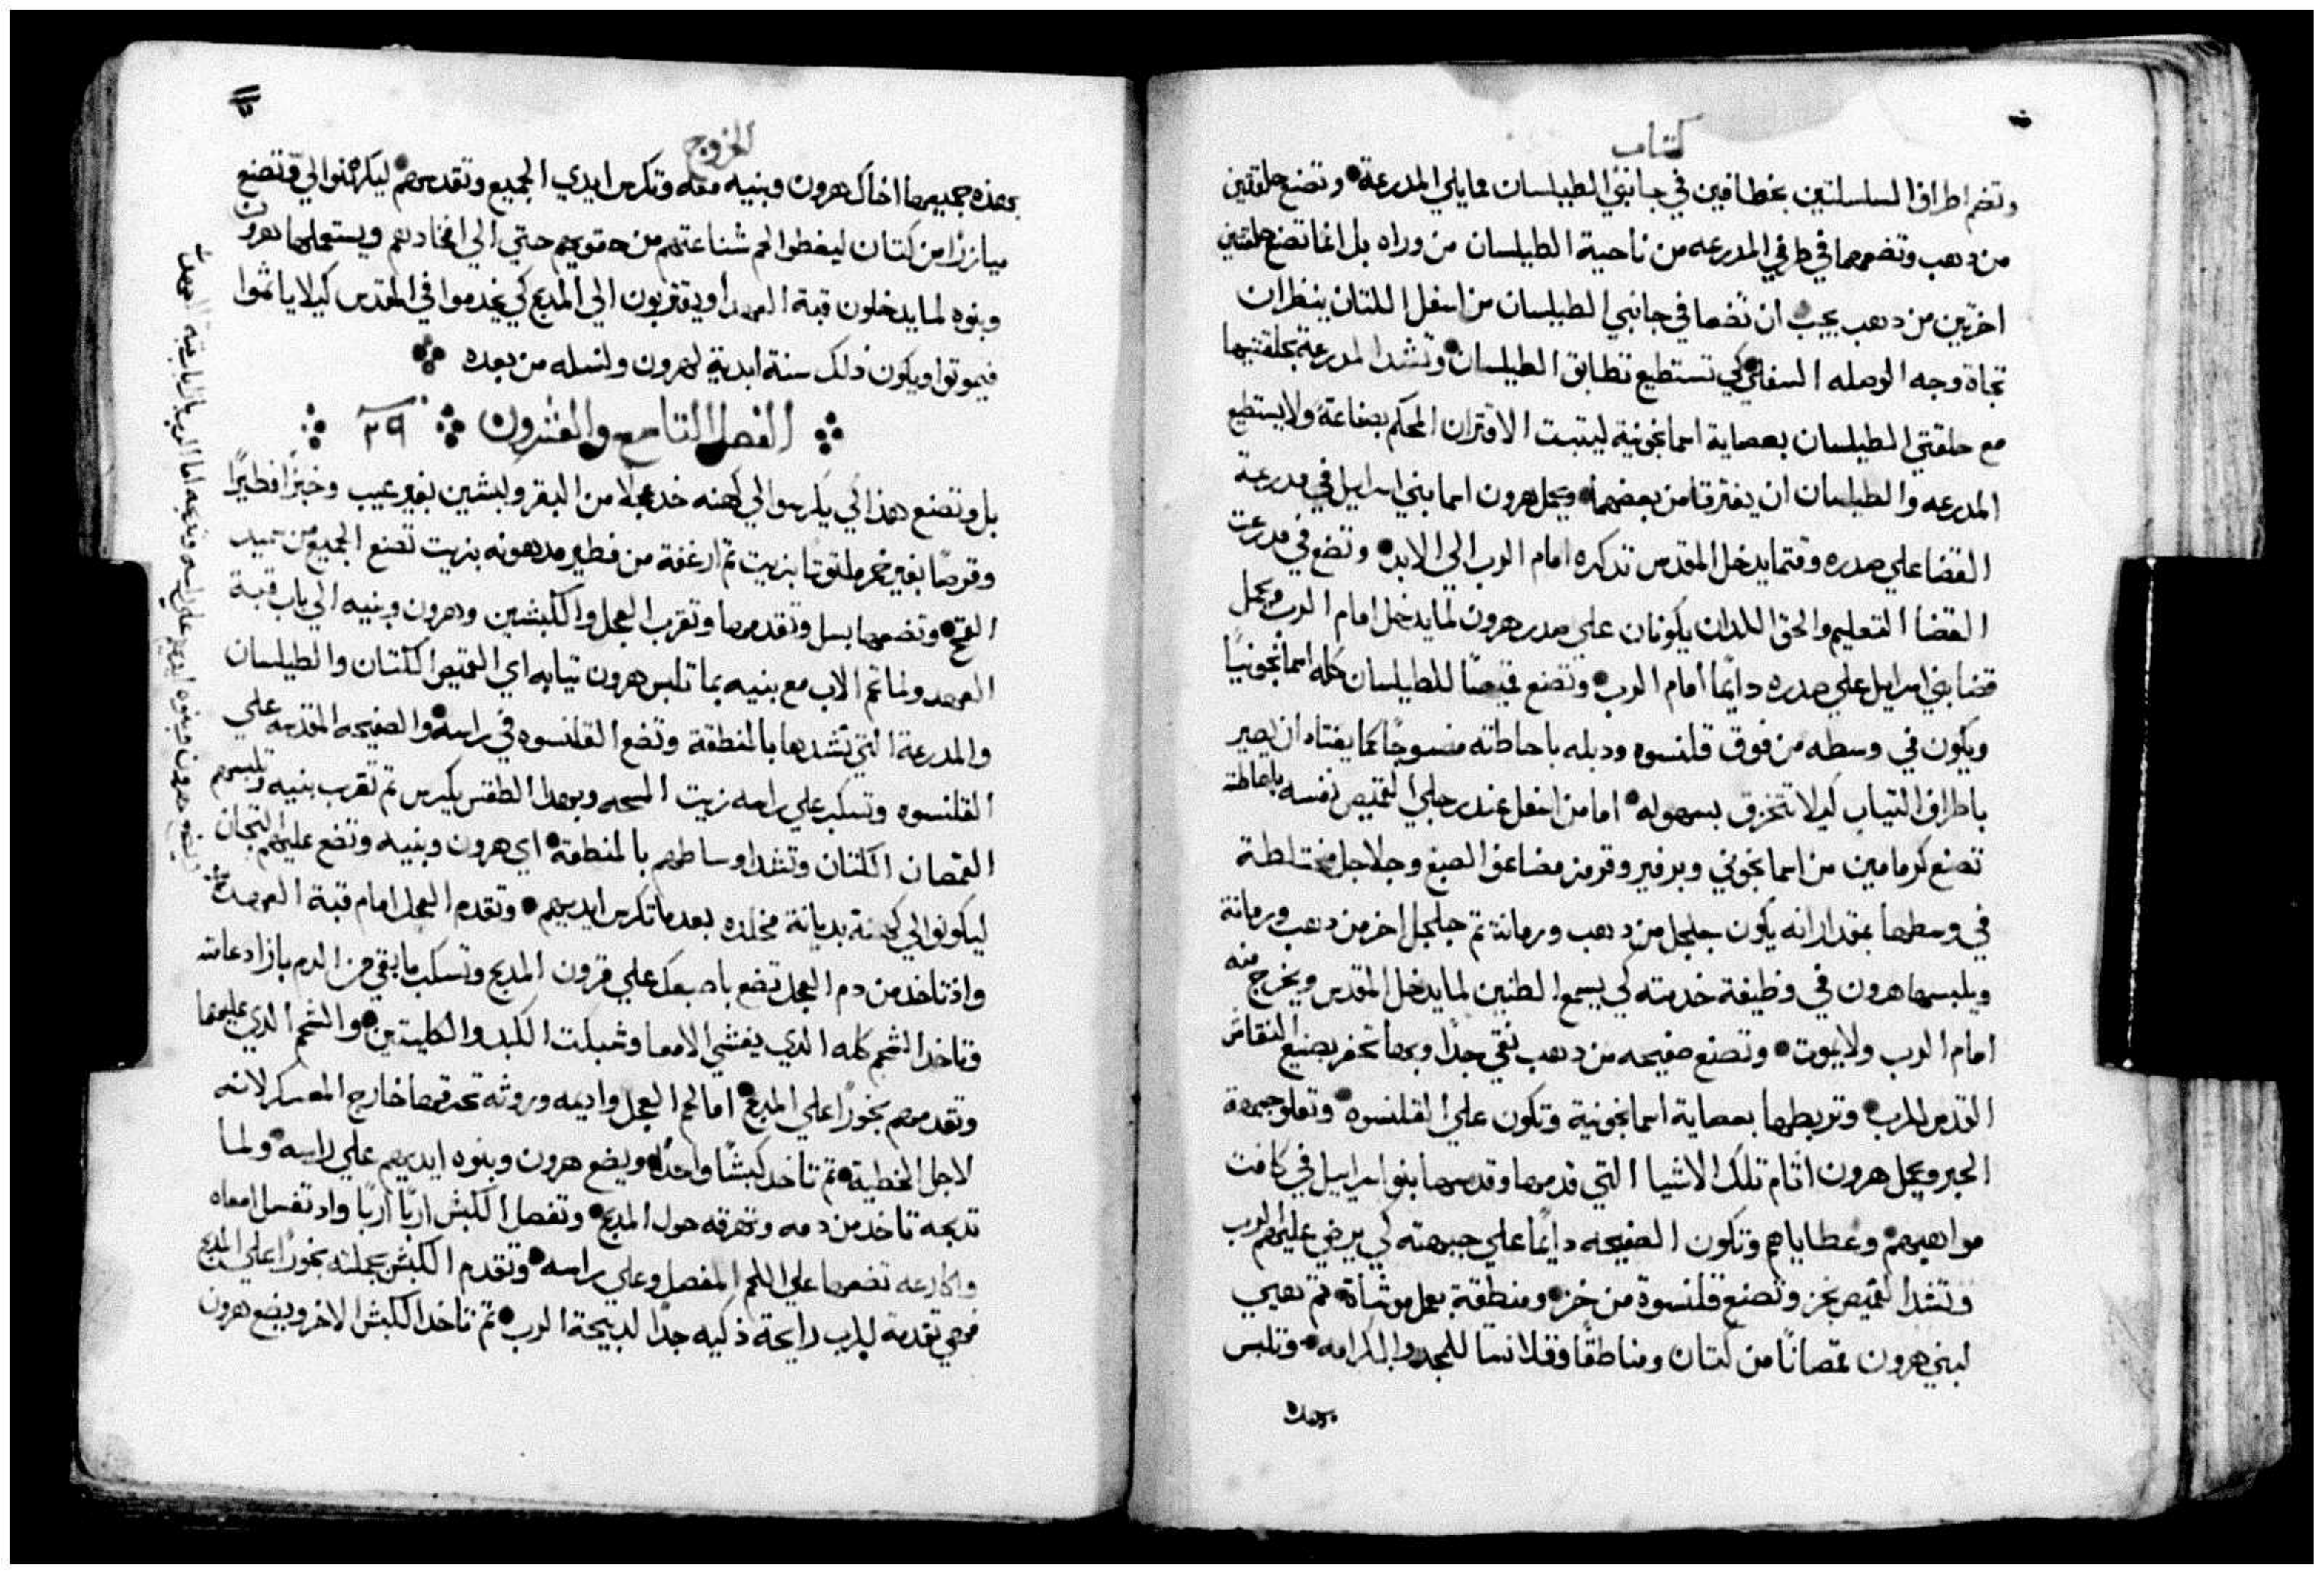 كتاب
وتضم اطراف السلسلتين بخطافين في جانبي الطيلسان مما يلي المدرعة • وتصنع حلقتين
من دهب وتضعهما في طرفي المدرعه من ناحية الطيلسان من وراه بل انما تصنع حلقتين
اخرتين من دهب يجب ان تضعا في جانبي الطيلسان من اسفل اللتان ينظران
تجاة وجه الوصله السفلي كي تستطيع تطابق الطيلسان • وتشد المدرعة بحلقتيها
مع حلقتي الطيلسان بعصابة اسمانجونية ليتبت الاقتران المحكم بصناعة ولا يستطيع
المدرعه والطيلسان ان يفترقا من بعضهما • ويحمل هرون اسما بني اسرايل في مدرعة
القضا علي صدره وقتما يدخل المقدس تدكره امام الرب الي الابد • وتضع في مدرعت
القضا التعليم والحق اللدان يكونان علي صدر هرون لما يدخل امام الرب ويحمل
قضا بني اسرايل علي صدره دايما امام الرب • وتصنع قميصا للطيلسان كله اسمانجونيا
ويكون في وسطه من فوق قلنسوه ودبله باحاطته منسوجا كما يعتاد ان يصير
باطراف التياب كيلا تتخزق بسهوله • اما من اسفل عند رجلي القميص نفسه باحاطته
تصنع كرمامين من اسمانجوني وبرفير وقرمز مضاعف الصبغ وجلاجل مختلطة
في وسطهما بمقدار انه يكون جلجل من دهب ورمانة تم جلجل اخر من دهب ورمانة
ويلبسها هرون في وظيفة خدمته كي يسمع الطنين لما يدخل المقدس ويخرج منه
امام الرب ولا يموت • وتصنع صفيحه من دهب نقي جدا وبها تحفر بصنيع النقاش
القدس للرب • وتربطها بعصابة اسمانجونية وتكون علي القلنسوه • وتعلو جبهة
الحبر ويحمل هرون اتام تلك الاشيا التي قدمها وقدسها بنو اسراييل في كافت
مواهبهم • وعطاياهم وتكون الصفيحه دايما علي جبهته كي يرضي عليهم الرب
وتشد القميص بخز وتصنع قلنسوة من خز • ومنطقة بعمل موشاة • تم تهيي
لبني هرون قمصانا من كتان ومناطقا وقلانسا للمجد والكرامه • وتلبس
بهده
الخروج
بهده جميعها اخاك هرون وبنيه معه وتكرس ايدي الجميع وتقدسهم • ليكهنوا الي وتصنع
ميازرا من كتان ليغطوا لحم شناعتهم من حقويهم حتي الي افخادهم ويستعملها هرون
وبنوه لما يدخلون قبة العهد او يقتربون الي المدبح كي يخدموا في المقدس كيلا ياثموا
فيموتوا ويكون دلك سنة ابدية لهرون ولنسله من بعده
الفصل التاسع والعشرون ٢٩
بل وتصنع هدا لكي يكرسوا لي كهنه خد عجلا من البقر وكبشين بغير عيب وخبزا فطيرا
وقرصا بغير خمر ملتوتا بزيت تم ارغفة من فطير مدهونه بزيت تصنع الجميع من سميد
القمح • وتضعها بسل وتقدمها وتقرب العجل والكبشين وهرون وبنيه الي باب قبة
العهد ولما تحم الاب مع بنيه بما تلبس هرون تيابه اي القميص الكتان والطيلسان
والمدرعة التي تشدها بالمنطقة وتضع القلنسوه في راسه • والصفيحه المقدسه علي
القلنسوه وتسكب علي راسه زيت المسحه وبهدا الطقس يكرس تم تقرب بنيه وتلبسهم
القمصان الكتان وتشد اوساطهم بالمنطقة • اي هرون وبنيه وتضع عليهم التيجان
ليكونوا لي كهنة بديانة مخلده بعدما تكرس ايديهم • وتقدم العجل امام قبة العهد
واذ تاخد من دم العجل تضع باصبعك علي قرون المدبح وتسكب ما بقي من الدم بازا دعامته
وتاخد الشحم كله الدي يغشي الامعا وشبكت الكبد والكليتين • والشحم الدي عليهما
وتقدمهم بخورا علي المدبح • اما لحم العجل واديمه وروثه تحرقها خارج المعسكر لانه
لاجل الخطية • تم تاخد كبشا واحدا • ويضع هرون وبنوه ايديهم علي راسه • ولما
تدبحه تاخد من دمه وتهرقه حول المدبح • وتفصل الكبش اربا اربا واد تغسل امعاه
واكارعه تضعها علي اللحم المفصل وعلي راسه • وتقدم الكبش بجملته بخورا علي المدبح
فهي تقدمة للرب رايحة ذكيه جدا لدبيحة الرب • تم تاخد الكبش الاخر ويضع هرون
ويضع هرون وبنوه ايديهم علي راسه وتدبحه امام الرب الي باب قبة العهد